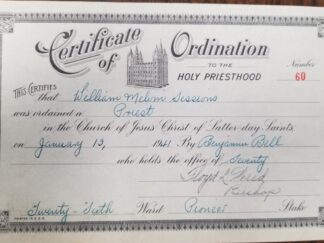 Certificate of Ordination
TO THE
HOLY PRIESTHOOD
Number
60
THIS CERTIFIES
that William Melvin Sessions
was ordained a Priest
in the Church of Jesus Christ of Latter-day Saints,
on January 13, 1941 By Benjamin Bell
who holds the office of Seventy
Bishop
Twenty-Sixth Ward Pioneer Stake
PRINTED IN U.S.A.